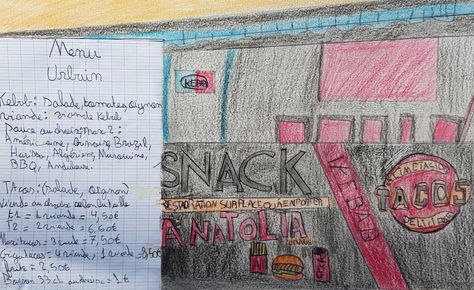 Menu
Urbain
Kebab: Salade, tomates, oignon
Viande: viande Kebab
Sauce au choix, max 2:
Américaine, Brazil,
Harissa, Algérienne, Marocaine,
BBQ, Andalouse.
Tacos: (Salade, oignon)
Viande au choix selon taille
t1 = 1 viande = 4,50€
t2 = 2 viande = 6,60€
3 viande = 7,50€
4 viande, 1 viande = 9,50€
frite = 2,50€
Boisson 33 cl au choix = 1€
KEBAB
SNACK
RESTAURATION SUR PLACE OU A EMPORTER
ANATOLIA
KEBAB
TACOS